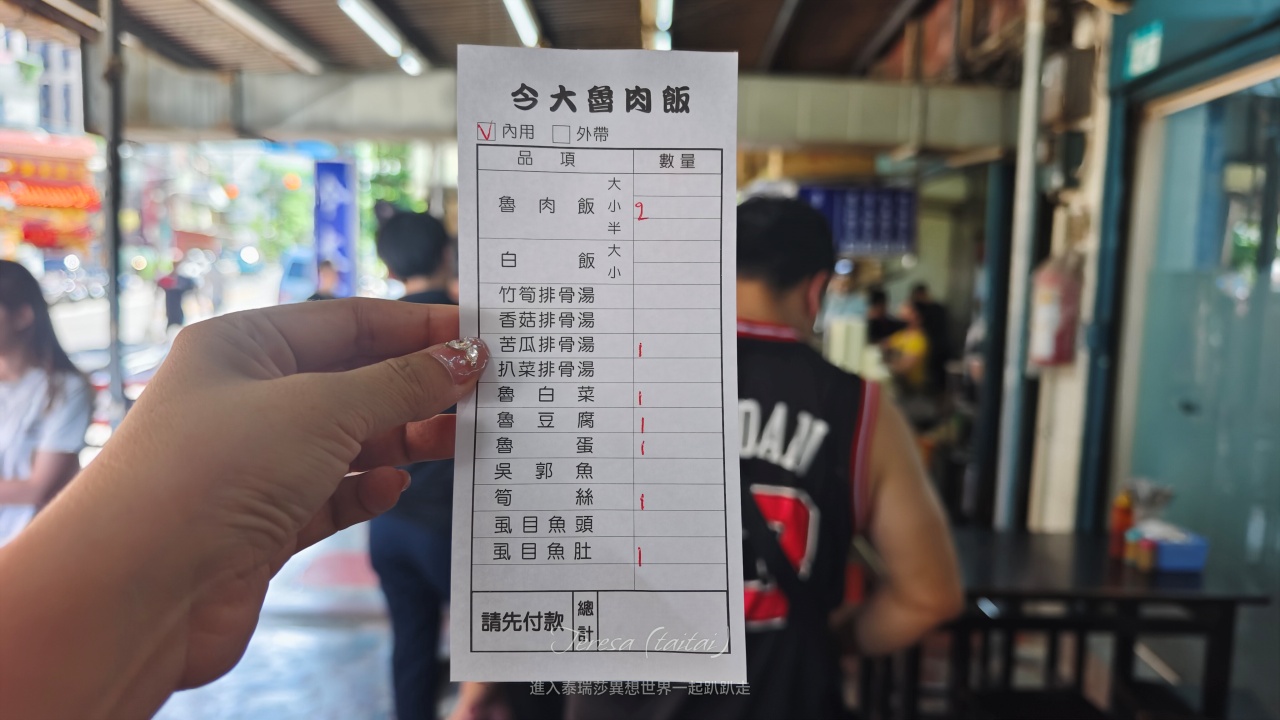 今大魯肉飯
V 內用 外帶
品項 數量
魯肉飯 大
小 2
半
白飯 大
小
竹筍排骨湯
香菇排骨湯
苦瓜排骨湯 1
扒菜排骨湯
魯白菜 1
魯豆腐 1
魯蛋 1
吳郭魚
筍絲 1
虱目魚頭
虱目魚肚 1
請先付款 總計
Teresa (taitai)
進入泰瑞莎異想世界一起趴趴走